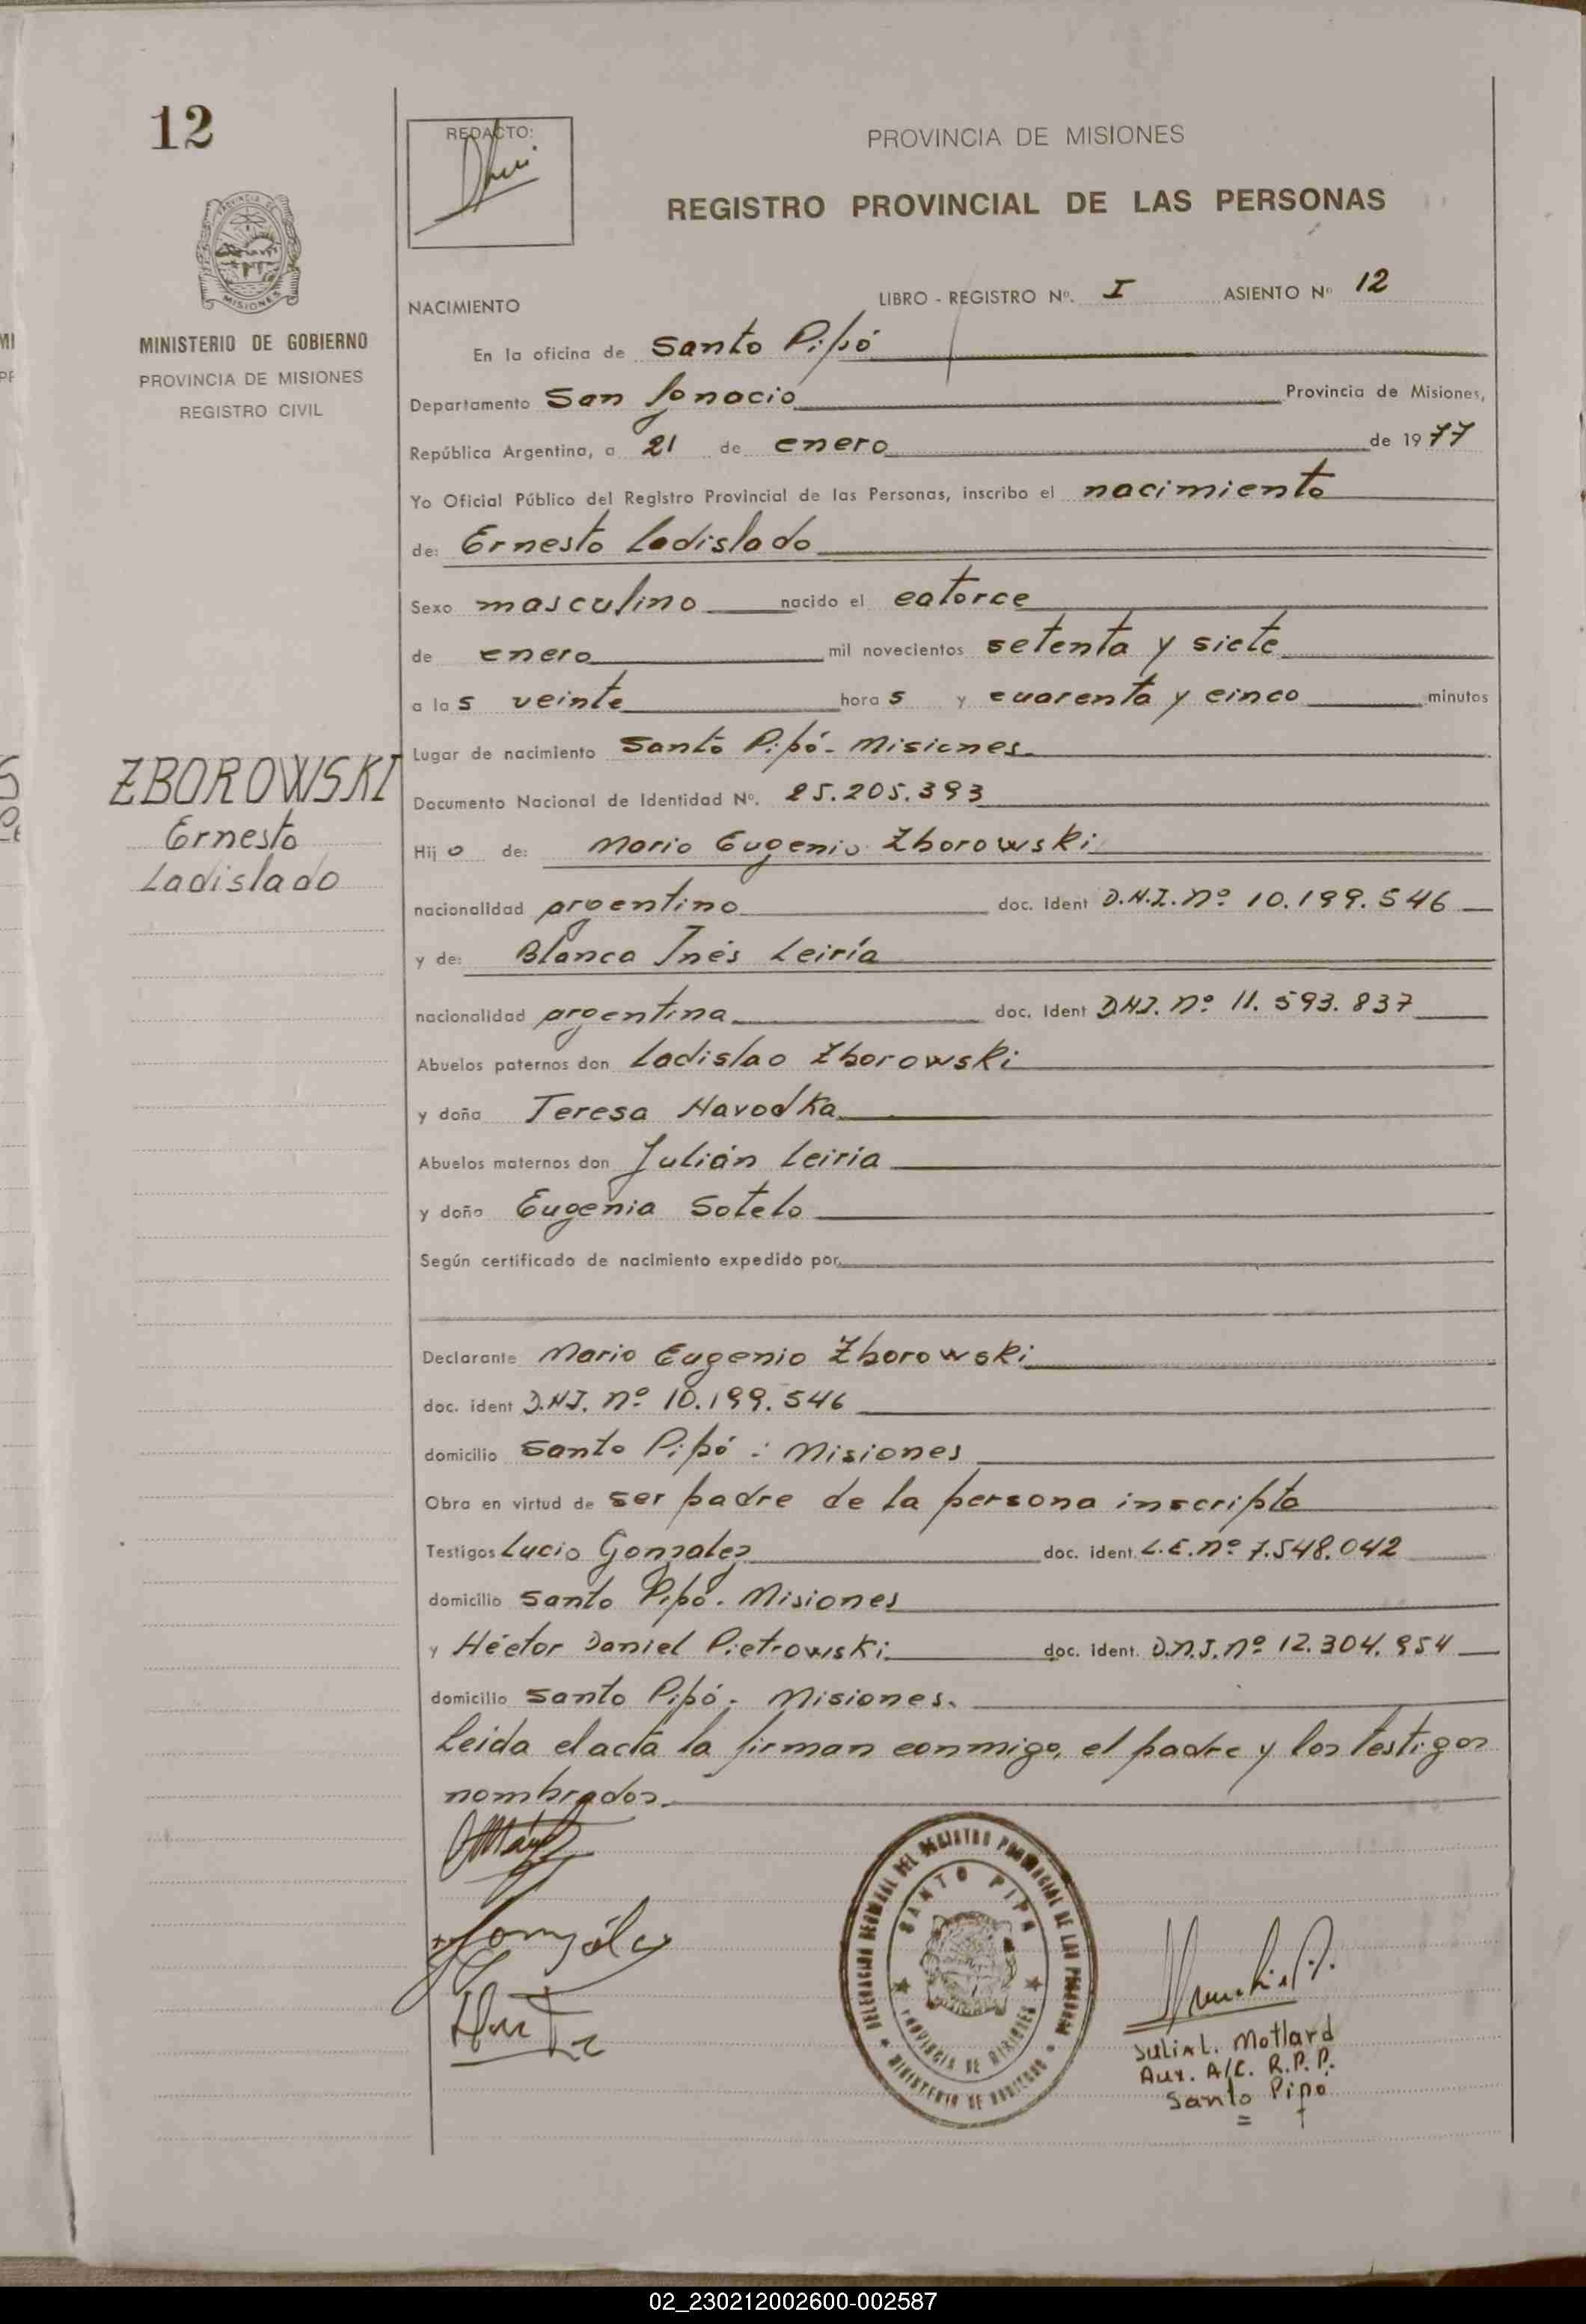 12
REDACTO:
PROVINCIA DE MISIONES
REGISTRO PROVINCIAL DE LAS PERSONAS
MISIONES
MINISTERIO DE GOBIERNO
PROVINCIA DE MISIONES
REGISTRO CIVIL
NACIMIENTO
LIBRO - REGISTRO Nº. I ASIENTO Nº 12
En la oficina de Santo Pipó
Departamento San Ignacio Provincia de Misiones,
República Argentina, a 21 de enero de 1977
Yo Oficial Público del Registro Provincial de las Personas, inscribo el nacimiento
de: Ernesto Ladislado
Sexo masculino nacido el catorce
de enero mil novecientos setenta y siete
a las veinte horas y cuarenta y cinco minutos
Lugar de nacimiento Santo Pipó - Misiones
ZBOROWSKI
Ernesto
Ladislado
Documento Nacional de Identidad Nº. 25.205.393
Hijo de: Mario Eugenio Zborowski
nacionalidad argentino doc. Ident D.N.I. nº 10.199.546
y de: Blanca Inés Leiría
nacionalidad argentina doc. Ident D.N.I. nº 11.593.837
Abuelos paternos don Ladislao Zborowski
y doña Teresa Havodka
Abuelos maternos don Julián Leiria
y doña Eugenia Sotelo
Según certificado de nacimiento expedido por
Declarante Mario Eugenio Zborowski
doc. ident D.N.I. nº 10.199.546
domicilio Santo Pipó - Misiones
Obra en virtud de ser padre de la persona inscripta
Testigos Lucio Gonzalez doc. ident. L.E. nº 7.548.042
domicilio Santo Pipó - Misiones
y Héctor Daniel Pietrowski doc. ident. D.N.I. nº 12.304.954
domicilio Santo Pipó - Misiones.
Leida el acta la firman conmigo, el padre y los testigos
nombrados.
DELEGACION SECCIONAL DEL REGISTRO PROVINCIAL DE LAS PERSONAS
SANTO PIPO
PROVINCIA DE MISIONES
MINISTERIO DE GOBIERNO
González
Julia L. Motlard
Aux. A/C. R.P.P.
Santo Pipó
02_230212002600-002587